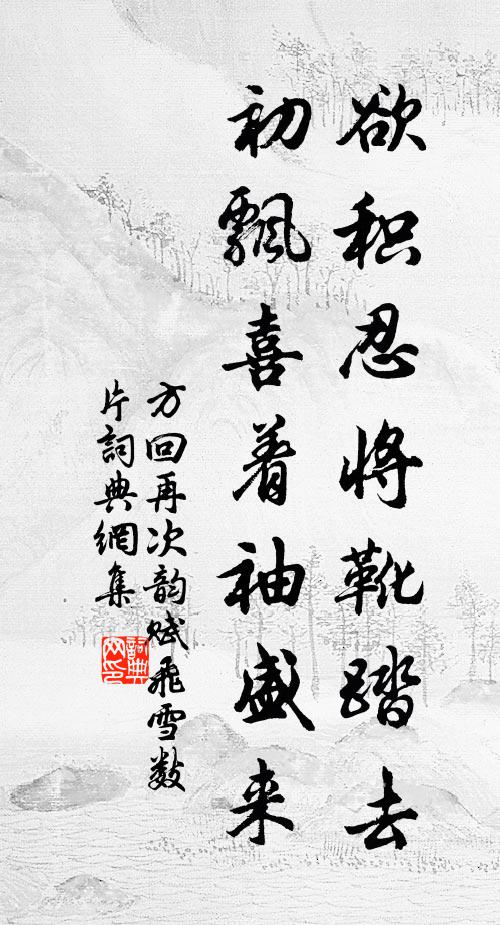 欲积忍将靴踏去
初飘喜着袖盛来
方回再次韵赋飞雪数
片词典网集
词典
网印